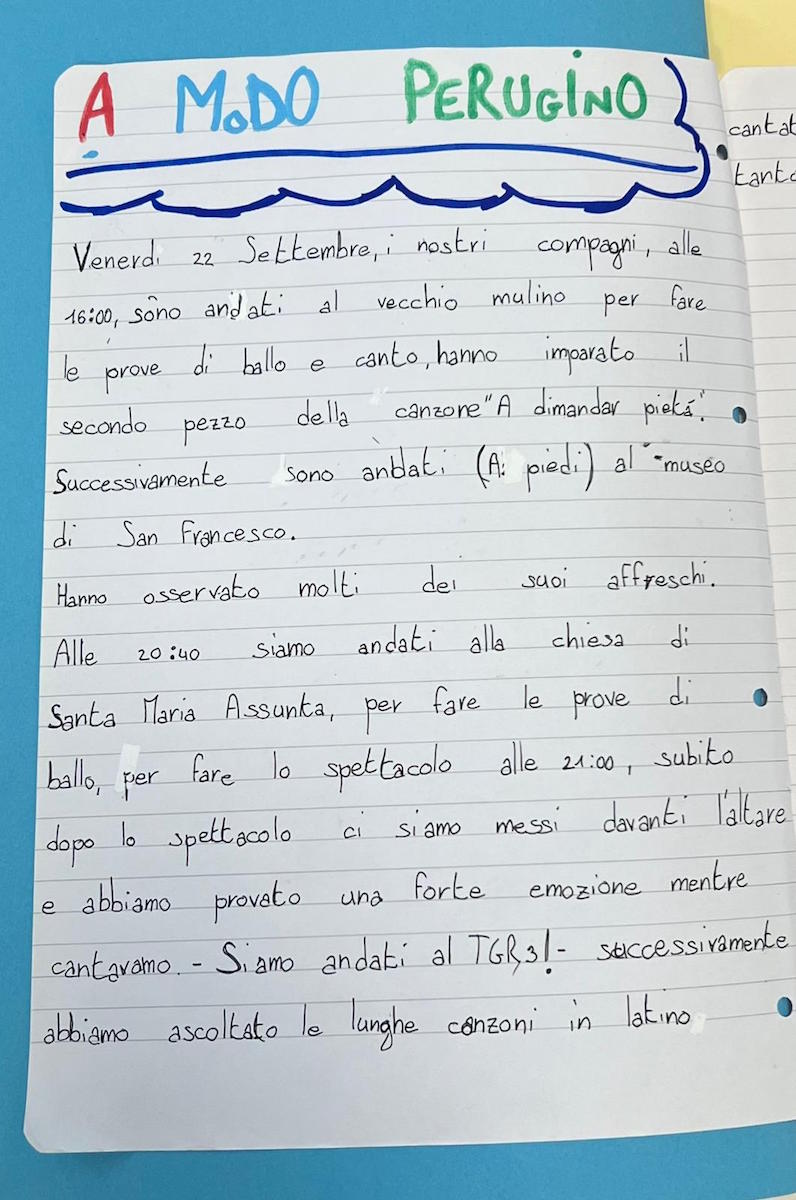 A MoDO PERUGINO
Venerdi 22 Settembre, i nostri compagni, alle
16:00, sono andati al vecchio mulino per fare
le prove di ballo e canto, hanno imparato il
secondo pezzo della canzone "A dimandar pietá".
Successivamente sono andati (A piedi) al museo
di San Francesco.
Hanno osservato molti dei suoi affreschi.
Alle 20:40 siamo andati alla chiesa di
Santa Maria Assunta, per fare le prove di
ballo, per fare lo spettacolo alle 21:00, subito
dopo lo spettacolo ci siamo messi davanti l'altare
e abbiamo provato una forte emozione mentre
cantavamo. - Siamo andati al TGR3! - successivamente
abbiamo ascoltato le lunghe canzoni in latino
cantat
tant